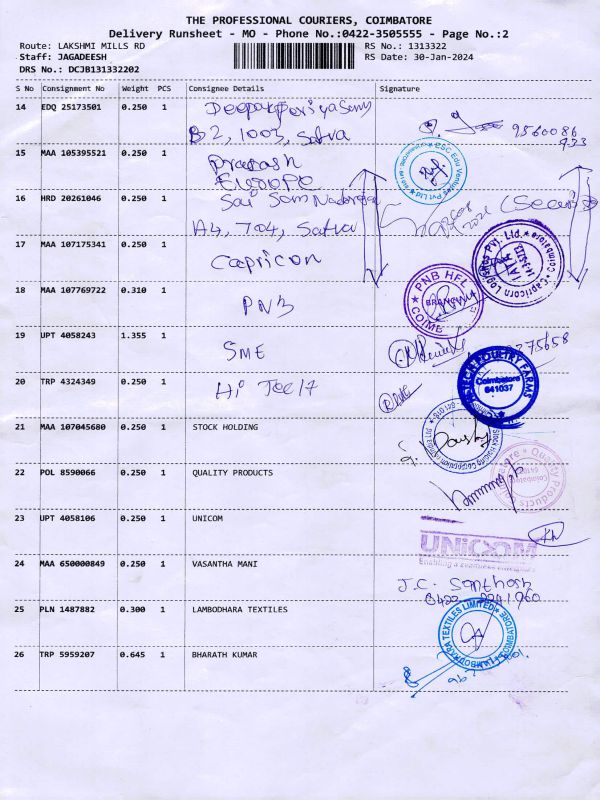 THE PROFESSIONAL COURIERS, COIMBATORE
Delivery Runsheet - MO - Phone No.:0422-3505555 - Page No.:2
Route: LAKSHMI MILLS RD
RS No.: 1313322
Staff: JAGADEESH
RS Date: 30-Jan-2024
DRS No.: DCJB131332202
S No Consignment No Weight PCS Consignee Details Signature
14 EDQ 25173501 0.250 1
B2, 1003, Satva
9560086
15 MAA 105395521 0.250 1 prakash
Europe
ESC Edu Ventures Pvt Ltd
16 HRD 20261046 0.250 1 Sai Som
A4, 704, Satva
17 MAA 107175341 0.250 1 Capricon
Capricorn Logistics Pvt. Ltd. Coimbatore
18 MAA 107769722 0.310 1 PNB
PNB HFL
BRANCH
COIMB
19 UPT 4058243 1.355 1 SME
75658
20 TRP 4324349 0.250 1 Hi Tech
HI-TECH POULTRY FARMS
Coimbatore
641037
21 MAA 107045680 0.250 1 STOCK HOLDING
Stock Holding Corporation of India Ltd
22 POL 8590066 0.250 1 QUALITY PRODUCTS
Quality Products
Coimbatore
23 UPT 4058106 0.250 1 UNICOM
UNiCOM
Enabling a seamless enterprise
24 MAA 650000849 0.250 1 VASANTHA MANI
J.C. Santhosh
0422 2241960
25 PLN 1487882 0.300 1 LAMBODHARA TEXTILES
LAMBODHARA TEXTILES LIMITED
COIMBATORE
26 TRP 5959207 0.645 1 BHARATH KUMAR